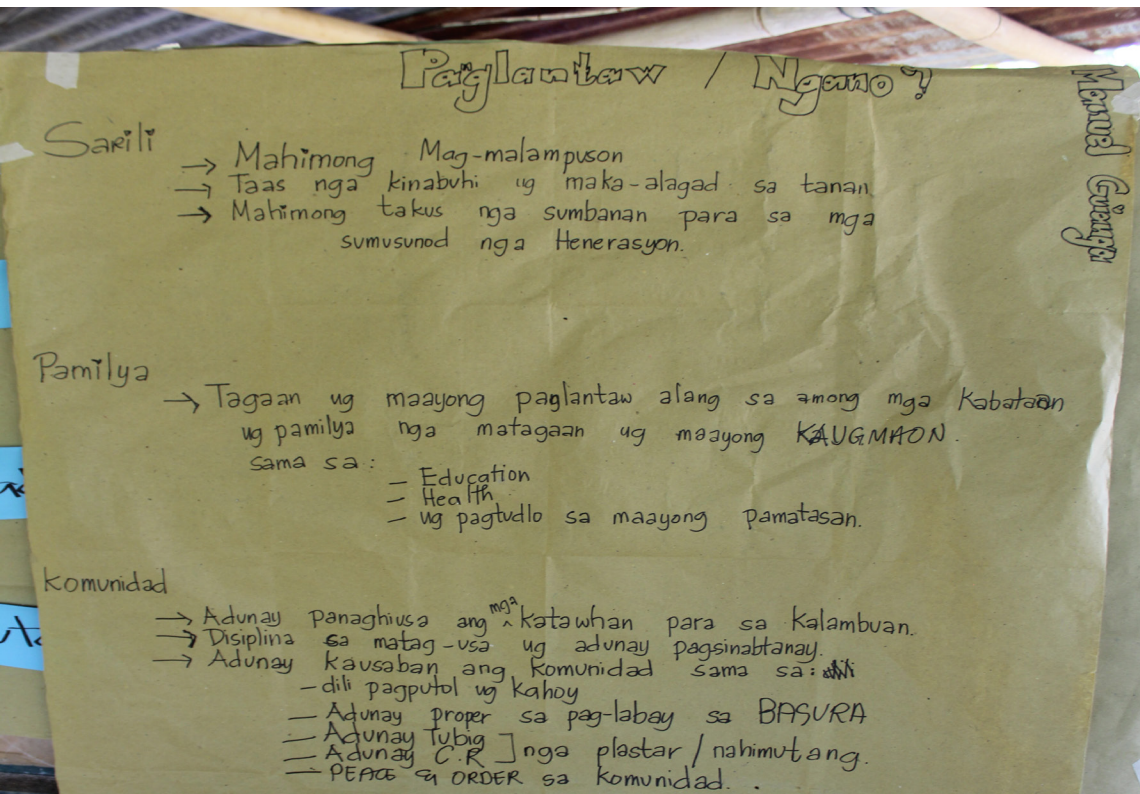 Paglantaw / Ngano?
Manuel Guianga
Sarili
→ Mahimong Mag-malampuson
→ Taas nga kinabuhi ug maka-alagad sa tanan.
→ Mahimong takus nga sumbanan para sa mga
sumusunod nga Henerasyon.
Pamilya
→ Tagaan ug maayong paglantaw alang sa among mga kabataan
ug pamilya nga matagaan ug maayong KAUGMAON.
sama sa:
– Education
– Health
– ug pagtudlo sa maayong pamatasan.
Komunidad
→ Adunay panaghiusa ang mga katawhan para sa Kalambuan.
→ Disiplina sa matag-usa ug adunay pagsinabtanay.
→ Adunay kausaban ang komunidad sama sa:
– dili pagputol ug kahoy
– Adunay proper sa pag-labay sa BASURA
– Adunay Tubig
– Adunay C.R ] nga plastar / nahimutang.
– PEACE & ORDER sa komunidad.